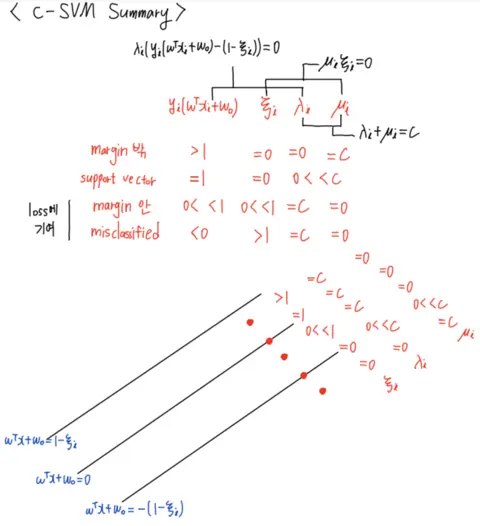 < C-SVM Summary >
λᵢ(yᵢ(wᵀxᵢ+w₀)-(1-ξᵢ))=0
μᵢξᵢ=0
yᵢ(wᵀxᵢ+w₀) ξᵢ λᵢ μᵢ
λᵢ+μᵢ=C
margin 밖 >1 =0 =0 =C
support vector =1 =0 0< <C
loss에 기여
margin 안 0< <1 0< <1 =C =0
misclassified <0 >1 =C =0
>1 =C =C =C =0 =0 =0 0< <C =C μᵢ
=1
0< <1 0< <C =0 λᵢ
=0 =0 ξᵢ
wᵀx+w₀=1-ξᵢ
wᵀx+w₀=0
wᵀx+w₀=-(1-ξᵢ)